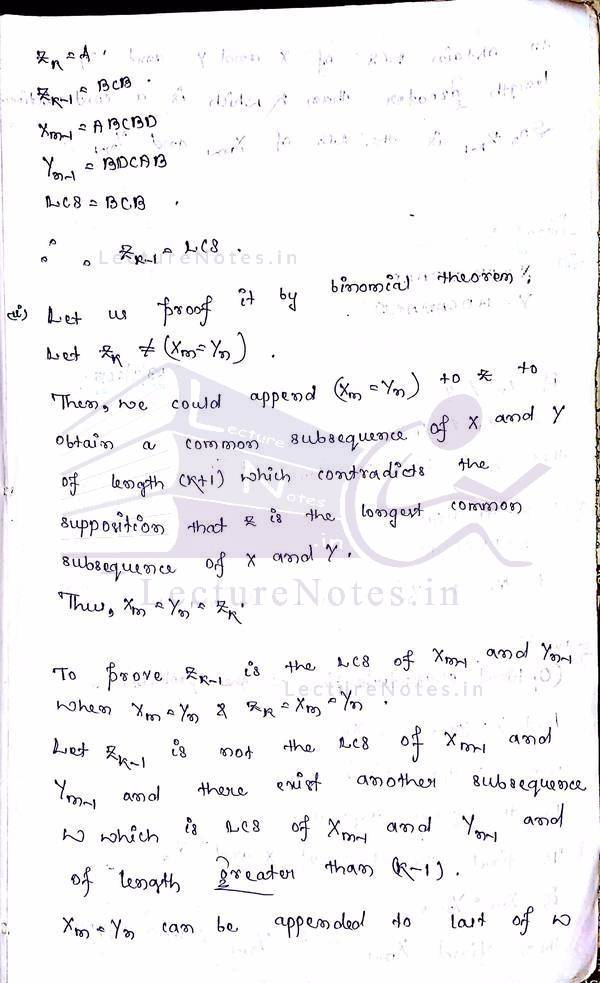 Zk = A .
Zk-1 = BCB .
Xm-1 = ABCBD
Yn-1 = BDCAB
LCS = BCB .
∴ Zk-1 = LCS .
LectureNotes.in
Let us proof it by binomial theorem ;
Let Zk ≠ (Xm = Yn) .
Then, we could append (Xm = Yn) to Z to
obtain a common subsequence of X and Y
of length (k+1) which contradicts the
supposition that Z is the longest common
subsequence of X and Y .
LectureNotes.in
Thus, Xm = Yn = Zk
To prove Zk-1 is the LCS of Xm-1 and Yn-1
LectureNotes.in
when Xm = Yn & Zk = Xm = Yn .
Let Zk-1 is not the LCS of Xm-1 and
Yn-1 and there exist another subsequence
W which is LCS of Xm-1 and Yn-1 and
of length greater than (k-1) .
Xm = Yn can be appended to last of W